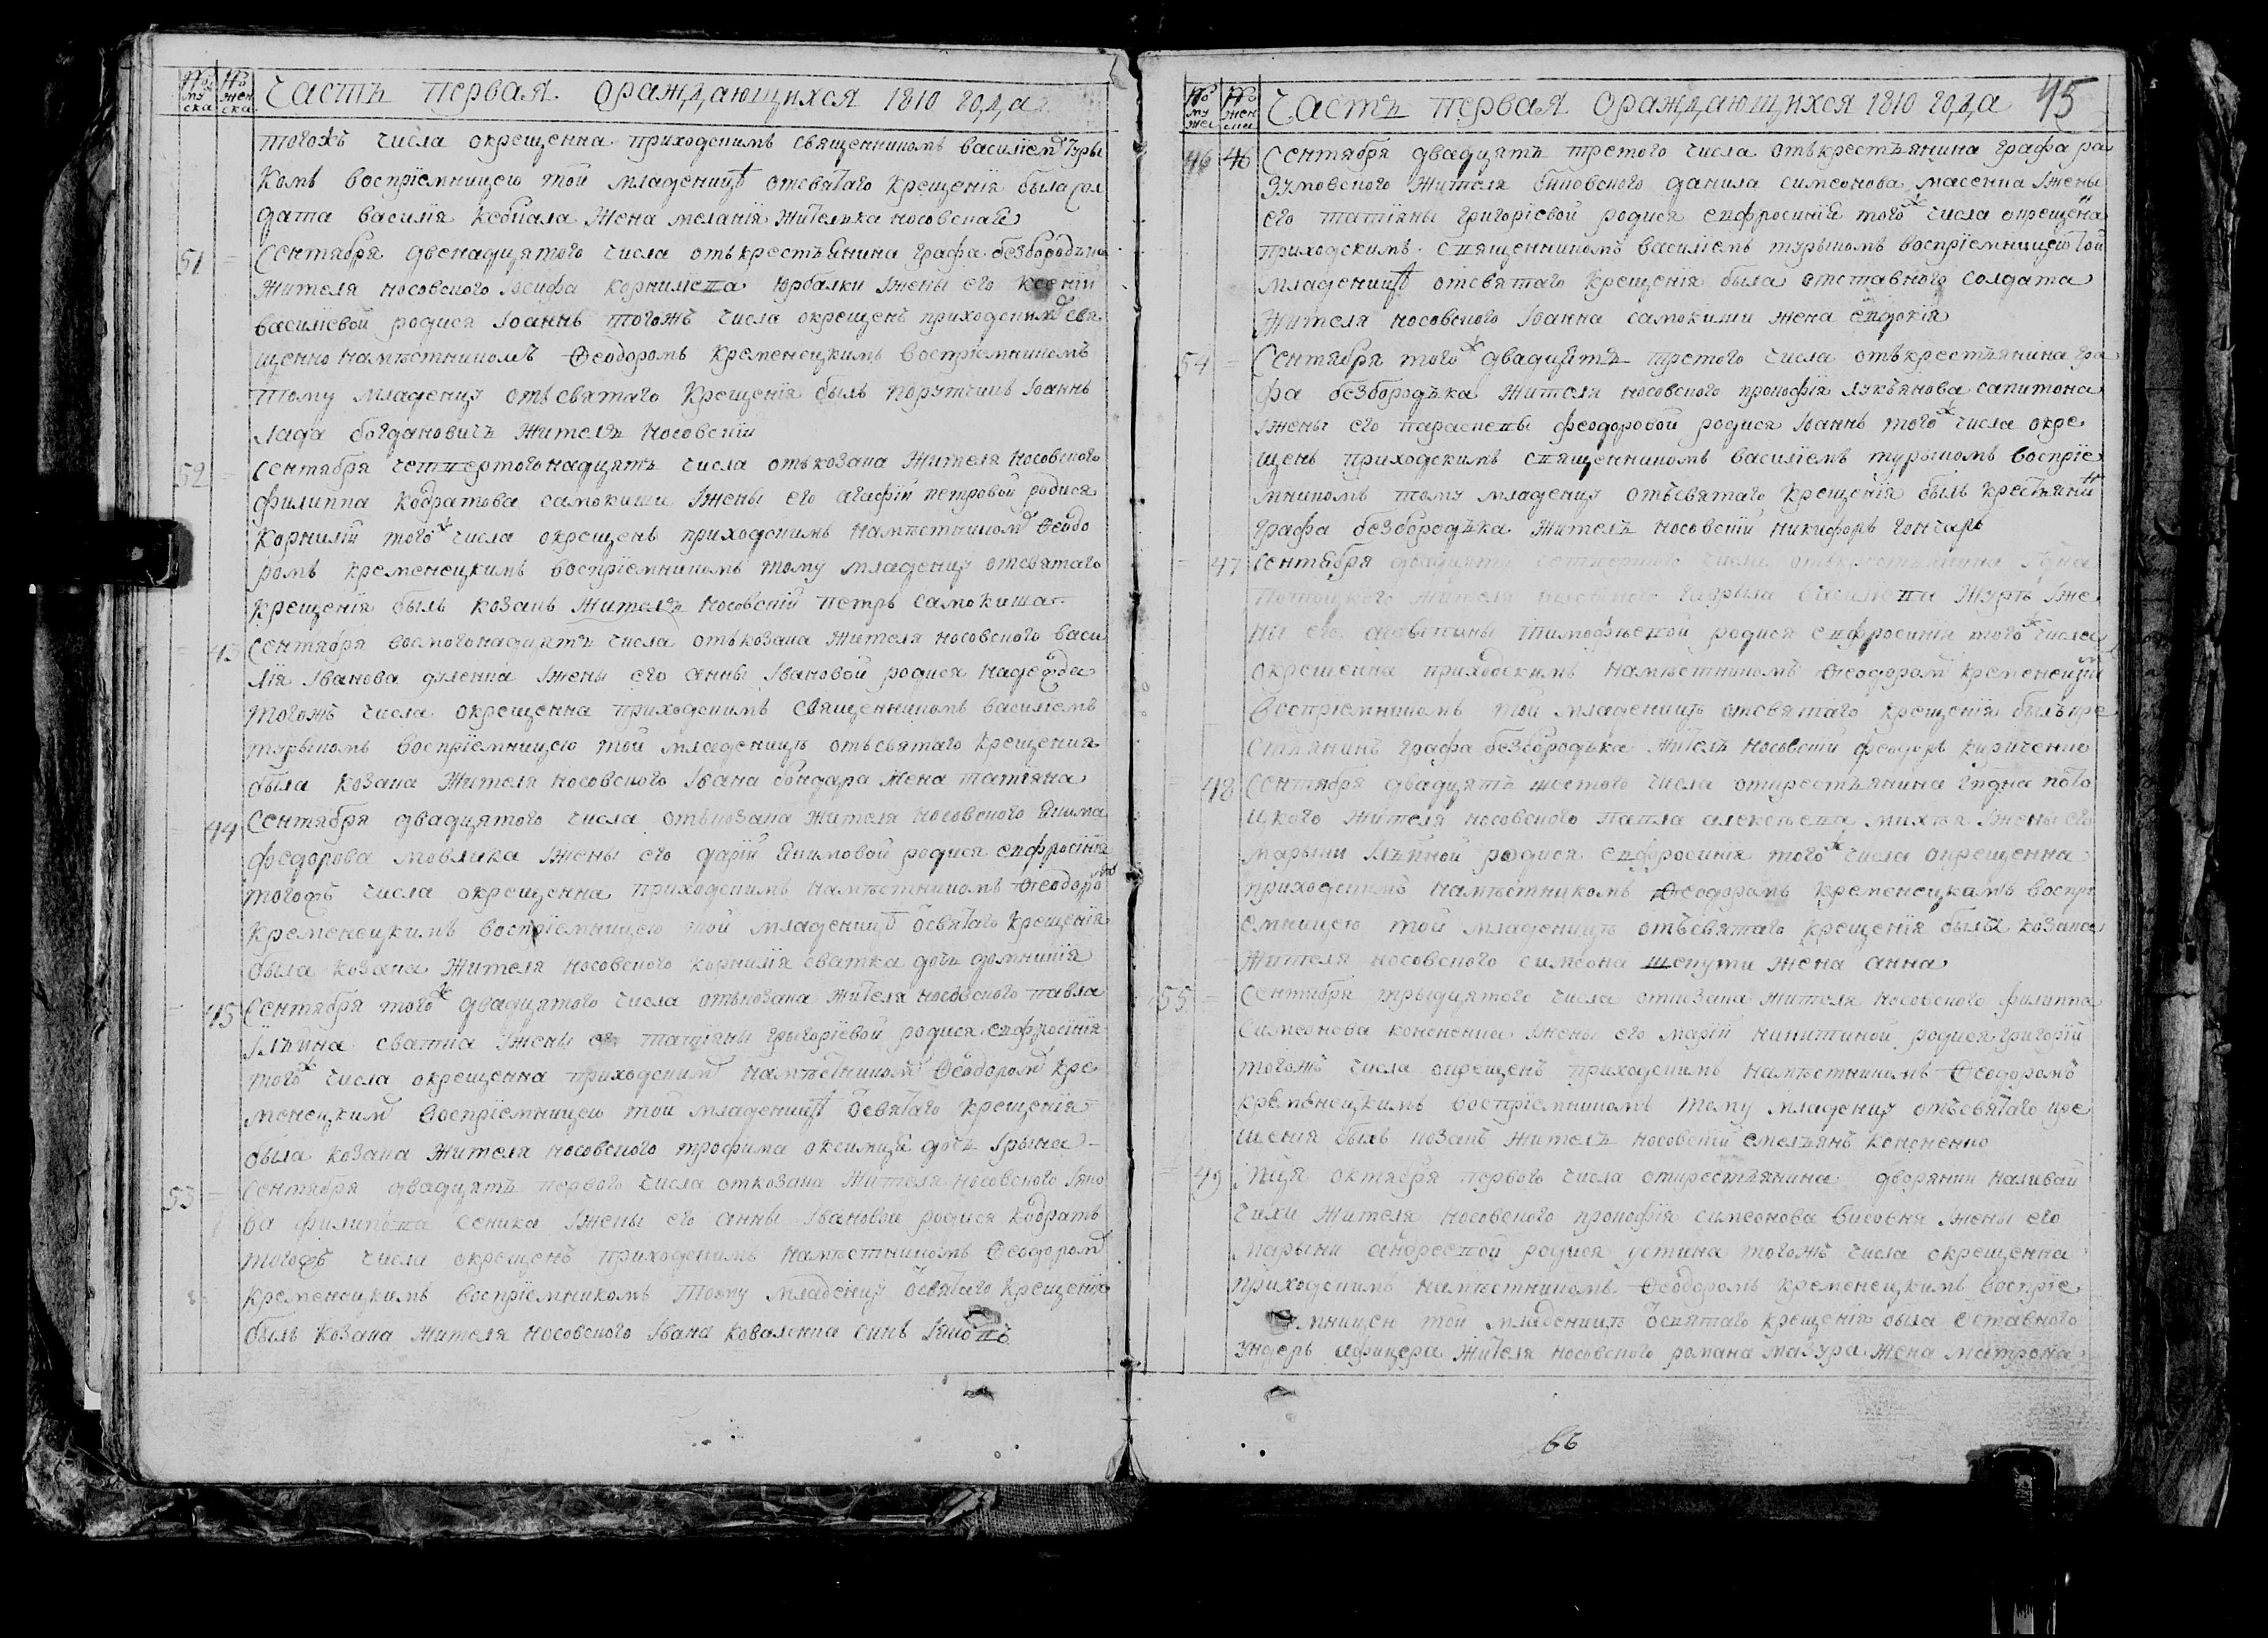 № му ска
№ жен ска
Часть первая ораждающихся 1810 года
тогожъ числа окрещенна приходскимъ священникомъ василіемъ Туры
комъ воспріемницею той младеницѣ отсвятаго крещенія была сол
дата василія кебкала жена меланія жителька носовская
51 Сентября двенадцятого числа отъ крестьянина графа безбородька
жителя носовского Іосифа корнилева Юрбалки Iжены его ксеніи
василіевой родися Iоаннъ тогожъ числа окрещенъ приходскимъ свя
щенно намѣстникомъ Ѳеодоромъ кременецкимъ воспріемникомъ
тому младенцу отъ святаго крещенія былъ порутчикъ Iоаннъ
лада богдановичъ житель носовскіи
52 сентября четвертогонадцять числа отъ козака жителя носовского
филиппа кодратова самокиши Iжены его агафіи петровой родися
корнилій того ж числа окрещенъ приходскимъ намѣстникомъ Ѳеодо
ромъ кременецкимъ воспріемникомъ тому младенцу отсвятаго
крещенія былъ козакъ житель носовскій петръ самокиша
43 Сентября восмогонадцять числа отъ козака жителя носовского васи
лія Iванова Iжены его анны Iвановой родися надежда
тогожъ числа окрещенна приходскимъ священникомъ василіемъ
турыкомъ воспріемницею той младеницѣ отъ святаго крещения
была козака жителя носовского Iвана бондара жена татіяна
44 Сентября двадцятого числа отъ козака жителя носовского Якима
федорова мовлика Iжены его дарій Якимовой родися евфросинія
тогожъ числа окрещенна приходскимъ намѣстникомъ Ѳеодоромъ
кременецкимъ воспріемницею той младеницѣ ѿсвятаго крещенія
была козака жителя носовского корнилія сватка дочь домникія
45 Сентября того ж двадцятого числа отъ козака жителя носовского павла
Iльина сватка Iжены его татіяны григоріевой родися евфросинія
того ж числа окрещенна приходским намѣстником Ѳеодором кре
менецким воспріемницею той младеницѣ ѿсвятаго крещенія
была козака жителя носовского трофима дочь Iрына
53 Сентября двадцять первого числа от козака жителя носовского Iяко
ва филипова сеника Iжены его анны Iвановой родися кодратъ
тогожъ числа окрещенъ приходскимъ намѣстникомъ Ѳеодором
кременецкимъ воспріемникомъ тому младенцу ѿсвятаго крещенія
былъ козака жителя носовского Iвана коваленка синъ Iяковъ
№ му жес
№ жен ски
Часть первая ораждающихся 1810 года 45
46 46 Сентября двадцять третого числа отъ крестьянина графа ра
зумовского жителя биковского данила симеонова масенка Iжены
его татіяны григоріевой родися евфросинія того ж числа окрещенна
приходскимъ священникомъ василіемъ турыкомъ воспріемницею той
младеницѣ отсвятаго крещенія была отставного солдата
жителя носовского Iванна самокиши жена евдокія
54 Сентября того ж двадцять третого числа отъ крестьянина гра
фа безбородька жителя носовского прокофія лукьянова сапитона
Iжены его параскевы феодоровой родися Iоаннъ того ж числа окре
щенъ приходскимъ священникомъ василіемъ турыкомъ воспріе
мникомъ тому младенцу отъ святаго крещенія былъ крестьянин
графа безбородька житель носовскій никифоръ гончаръ
47 сентября двадцять четвертого числа отъ крестьянина
потоцкого жителя носовского гаврыла Iже
ны его тимофѣевой родися евфросинія того ж числа
окрещенна приходскимъ намѣстникомъ Ѳеодором кременецким
воспріемникомъ той младеницѣ отсвятаго крещенія былъ кре
стьянинъ графа безбородька житель носовскій феодоръ кириченко
48 Сентября двадцять шестого числа открестьянина пото
цкого жителя носовского павла алексѣева михѣя Iжены его
марыни Iльиной родися евфросинія того ж числа окрещенна
приходскимъ намѣстникомъ Ѳеодоромъ кременецкимъ воспрі
емницею той младеницѣ отъ святаго крещенія была козака
жителя носовского симеона шепути жена анна
55 Сентября трыдцятого числа откозака жителя носовского филиппа
симеонова кононенка Iжены его маріи никитиной родися григорій
тогожъ числа окрещенъ приходскимъ намѣстникомъ Ѳеодоромъ
кременецкимъ воспріемникомъ тому младенцу отъ святаго кре
щенія былъ козакъ житель носовскій емельянъ кононенко
49 Мця октября первого числа открестьянина дворянки наливай
чихи жителя носовского прокофія симеонова висовня Iжены его
марыни андреевой родися устина тогожъ числа окрещенна
приходскимъ намѣстникомъ Ѳеодоромъ кременецкимъ воспріе
мницею той младеницѣ ѿсвятаго крещенія была ѿставного
ундеръ афицера жителя носовского романа мазура жена матрона
66